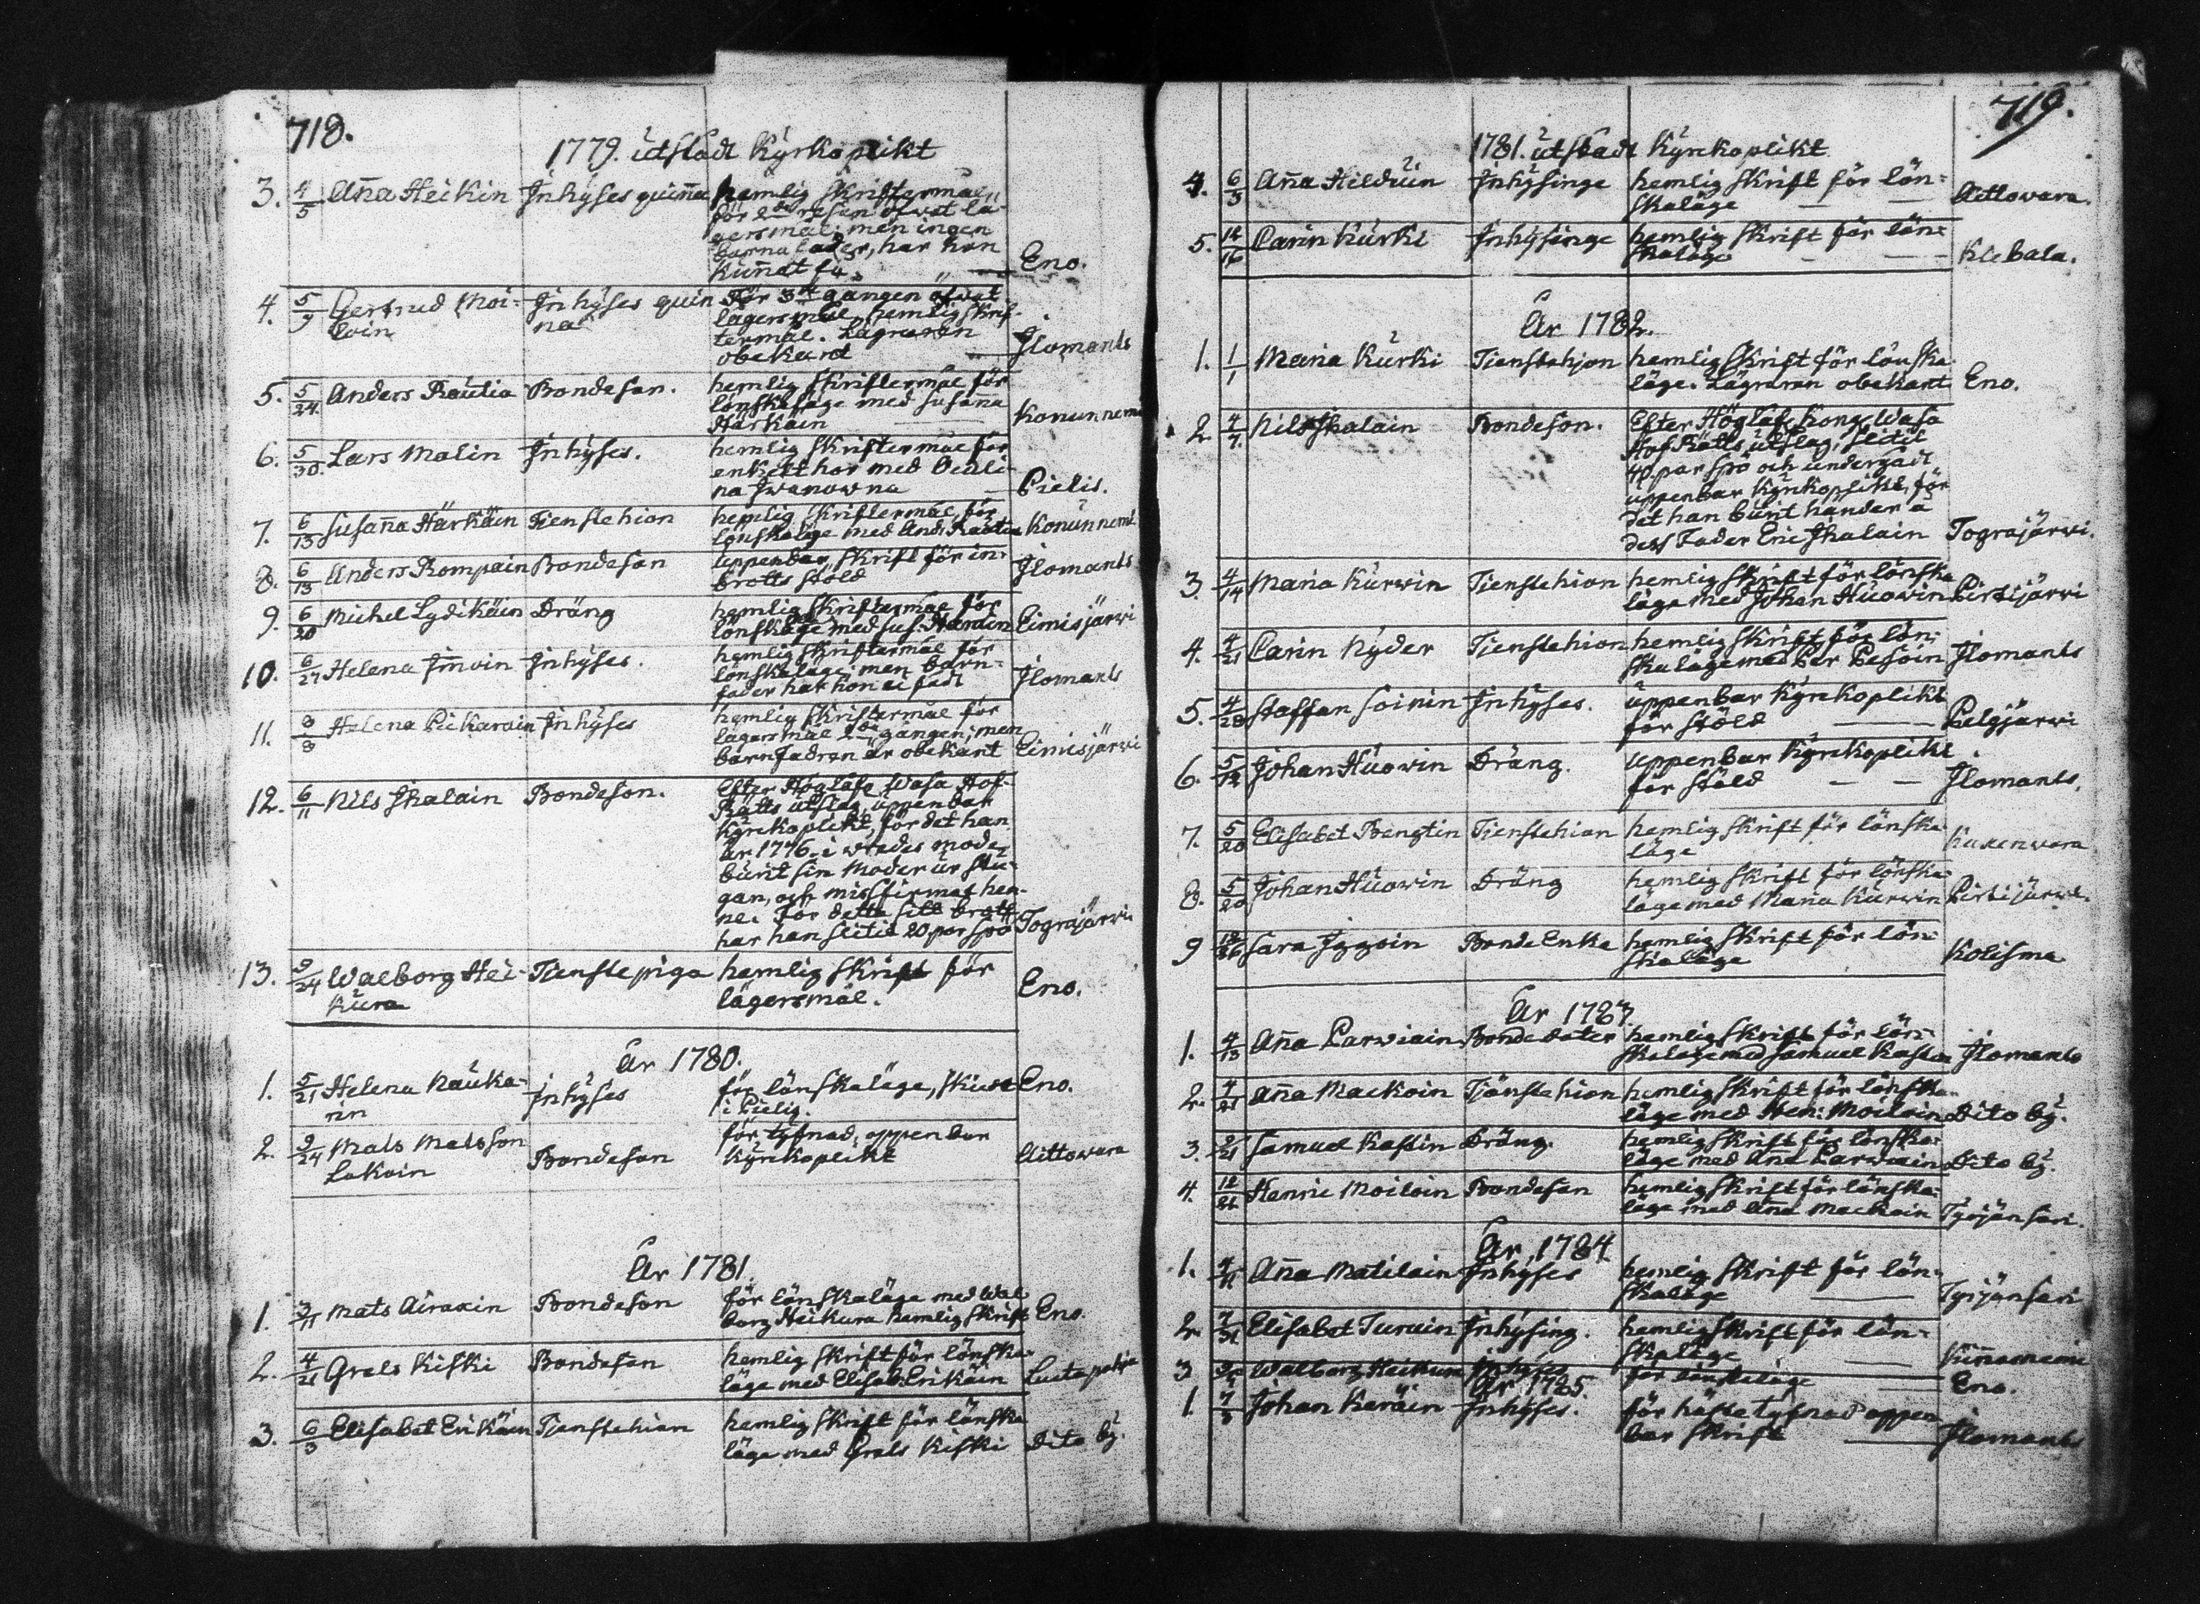 718.
1779. utstådt Kyrkoplikt
3. 4/5 Anna Heikin Inhyses quinna hemlig skriftermål
för 2dra resan öfvat lä-
gersmål; men ingen
barnafader, har hon
kunnat få. Eno.
4. 5/9 Gertrud Moi- Inhyses quin För 3die gången öfvat
loin na lägersmål, hemlig skrif-
termål. Lägraren
obekand Ilomants
5. 5/24 Anders Rautia Bondeson. hemlig skriftermål för
lönskaläge med Susanna
Härkäin Konunnemi
6. 5/30 Lars Malin Inhyses. hemlig skriftermål för
enkelt hor med Oculi-
na Iwanowna Pielis.
7. 6/13 Susanna Härkäin Tienstehion hemlig skriftermål för
lönskaläge med And. Rautia Konunnemi
8. 6/13 Anders Rompain Bondeson uppenbar skrift för in-
brotts stöld Ilomants
9. 6/20 Michel Lydikäin Dräng hemlig skriftermål för
lönskläge med Sus. Eimisjärvi
10. 6/27 Helena Imoin Inhyses. hemlig skriftermål för
lönskaläge; men barn-
fader har hon ei fådt Ilomants
11. 8/8 Helena Pickarain Inhyses hemlig skriftermål för
lägersmål 2dra gången; men
barnfadren är obekant Eimisjärvi
12. 6/11 Nils Ikalain Bondeson. Efter Höglåfl. Wasa Hof-
Rätts utslag, uppenbar
Kyrkoplikt, för det han
År 1776. i vredes mode
burit sin Moder ur stu-
gan, och missfirmat hen-
ne. För detta sitt brott
har han slitit 20 par spö Tograjärvi
13. 9/24 Walborg Hei- Tienstepiga hemlig skrift för
kura lägersmål. Eno.
År 1780.
1. 5/21 Helena Nauka- Inhyses för lönskaläge, skedt Eno.
rin i Pielis.
2. 9/24 Mats Matsson Bondeson för tyfnad, oppenbar
Lakoin Kyrkoplikt Aittowara
År 1781.
1. 3/11 Mats Airaxin Bondeson för lönskaläge med Wal
borg Heikura hemlig skrift Eno.
2. 4/21 Grels Kiski Bondeson hemlig skrift för lönska-
läge med Elisab. Erikäin Luutapohja
3. 6/3 Elisabet Erikäin Tjenstehion hemlig skrift för lönska
läge med Grels Kiski Dito by.
719.
1781. utstadt Kyrkoplikt
4. 6/3 Anna Hildein Inhysinge hemlig skrift för lön-
skaläge Aittowara.
5. Carin Kurki Inhysinge hemlig skrift för lön-
skaläge
År 1782.
1. 1/1 Maria Kurki Tienstehjon hemlig skrift för lönska
läge. Lägraren obekant Eno.
2 4/7. Nils Ikalain Bondeson. Efter Höglåfl. Kongl. Wasa
Hof Rätts utslag, slitit
40. par spö och undergådt
uppenbar Kyrkoplikt, för
det han burit händer å
dess Fader Eric Ikalain Tograjärvi.
3. 4/14 Maria Kurwin Tienstehion hemlig skrift för lönska
läge med Johan Huowin Pirtijärvi
4. 4/21 Carin Ryder Tienstehion hemlig skrift för lön-
skaläge med Per Pesoin Ilomants
5. 4/28 Staffan Soinin Inhyses. uppenbar Kyrkoplikt
för stöld Pelgjärvi
6. 5/12 Johan Huowin Dräng. uppenbar Kyrkoplikt
för stöld Ilomants.
7. 5/20 Elisabet Bengtin Tienstehion hemlig skrift för lönska
läge Kuxenvara
8. 5/20 Johan Huowin Dräng hemlig skrift för lönska-
läge med Maria Kurwin Pirtijärvi.
9 Sara Iggoin Bonde Enka hemlig skrift för lön-
skaläge Kotisma
År 1783.
1. 4/13 Anna Parwiain Bondedoter hemlig skrift för lön-
skaläge med Samuel Kastin Ilomants
2. 4/21 Anna Mackoin Tjänstehion hemlig skrift för lönska-
läge med Hen: Moiloin Dito by.
3. Samuel Kastin Dräng. hemlig skrift för lönska-
läge med Ana Parwiain Dito by.
4. Henric Moiloin Bondeson hemlig skrift för lönska-
läge med Ana Mackoin Tyrjänsari.
År 1784
1. Anna Matilain Inhyses hemlig skrift för lön-
skaläge Tyrjänsari
2. Elisabet Turuin Inhysing. hemlig skrift för lön-
skaläge Kunnanemi
3 Walborg Heikura Inhyses för lönskaläge Eno.
År 1785.
1. 7/3 Johan Keräin Inhyses. för hästetyfnad oppen
bar skrift Ilomants